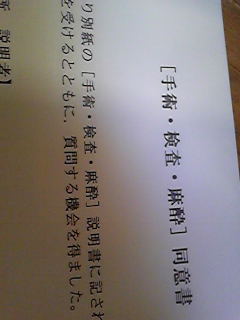 [手術・検査・麻酔] 同意書
り別紙の [手術・検査・麻酔] 説明書に記され
を受けるとともに、質問する機会を得ました。
説明者】